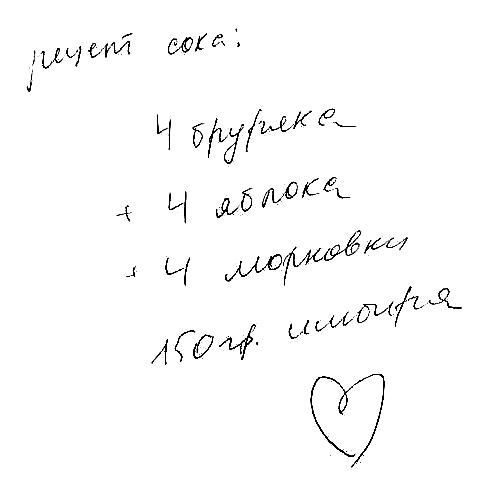 рецепт сока:
4 бруряка
+ 4 яблока
+ 4 морковки
150гр. имбиря